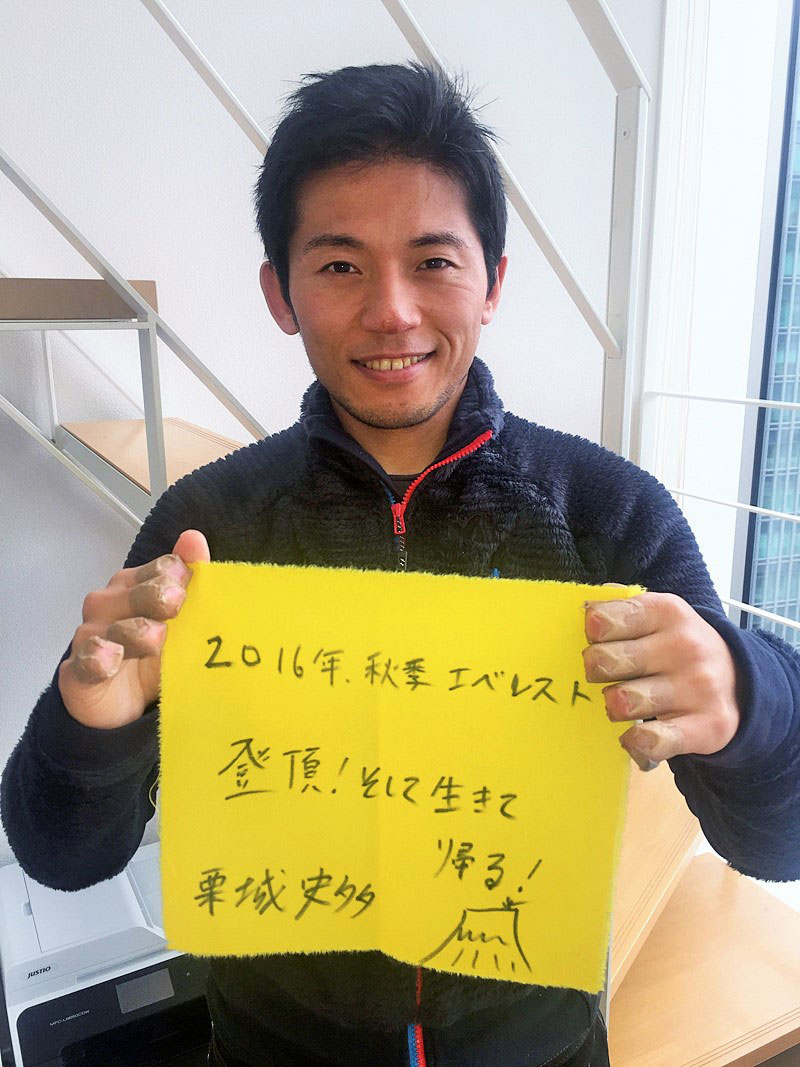 2016年、秋季 エベレスト
登頂！そして生きて
帰る！
栗城史多
JUSTIO
MFC-L9550CDW